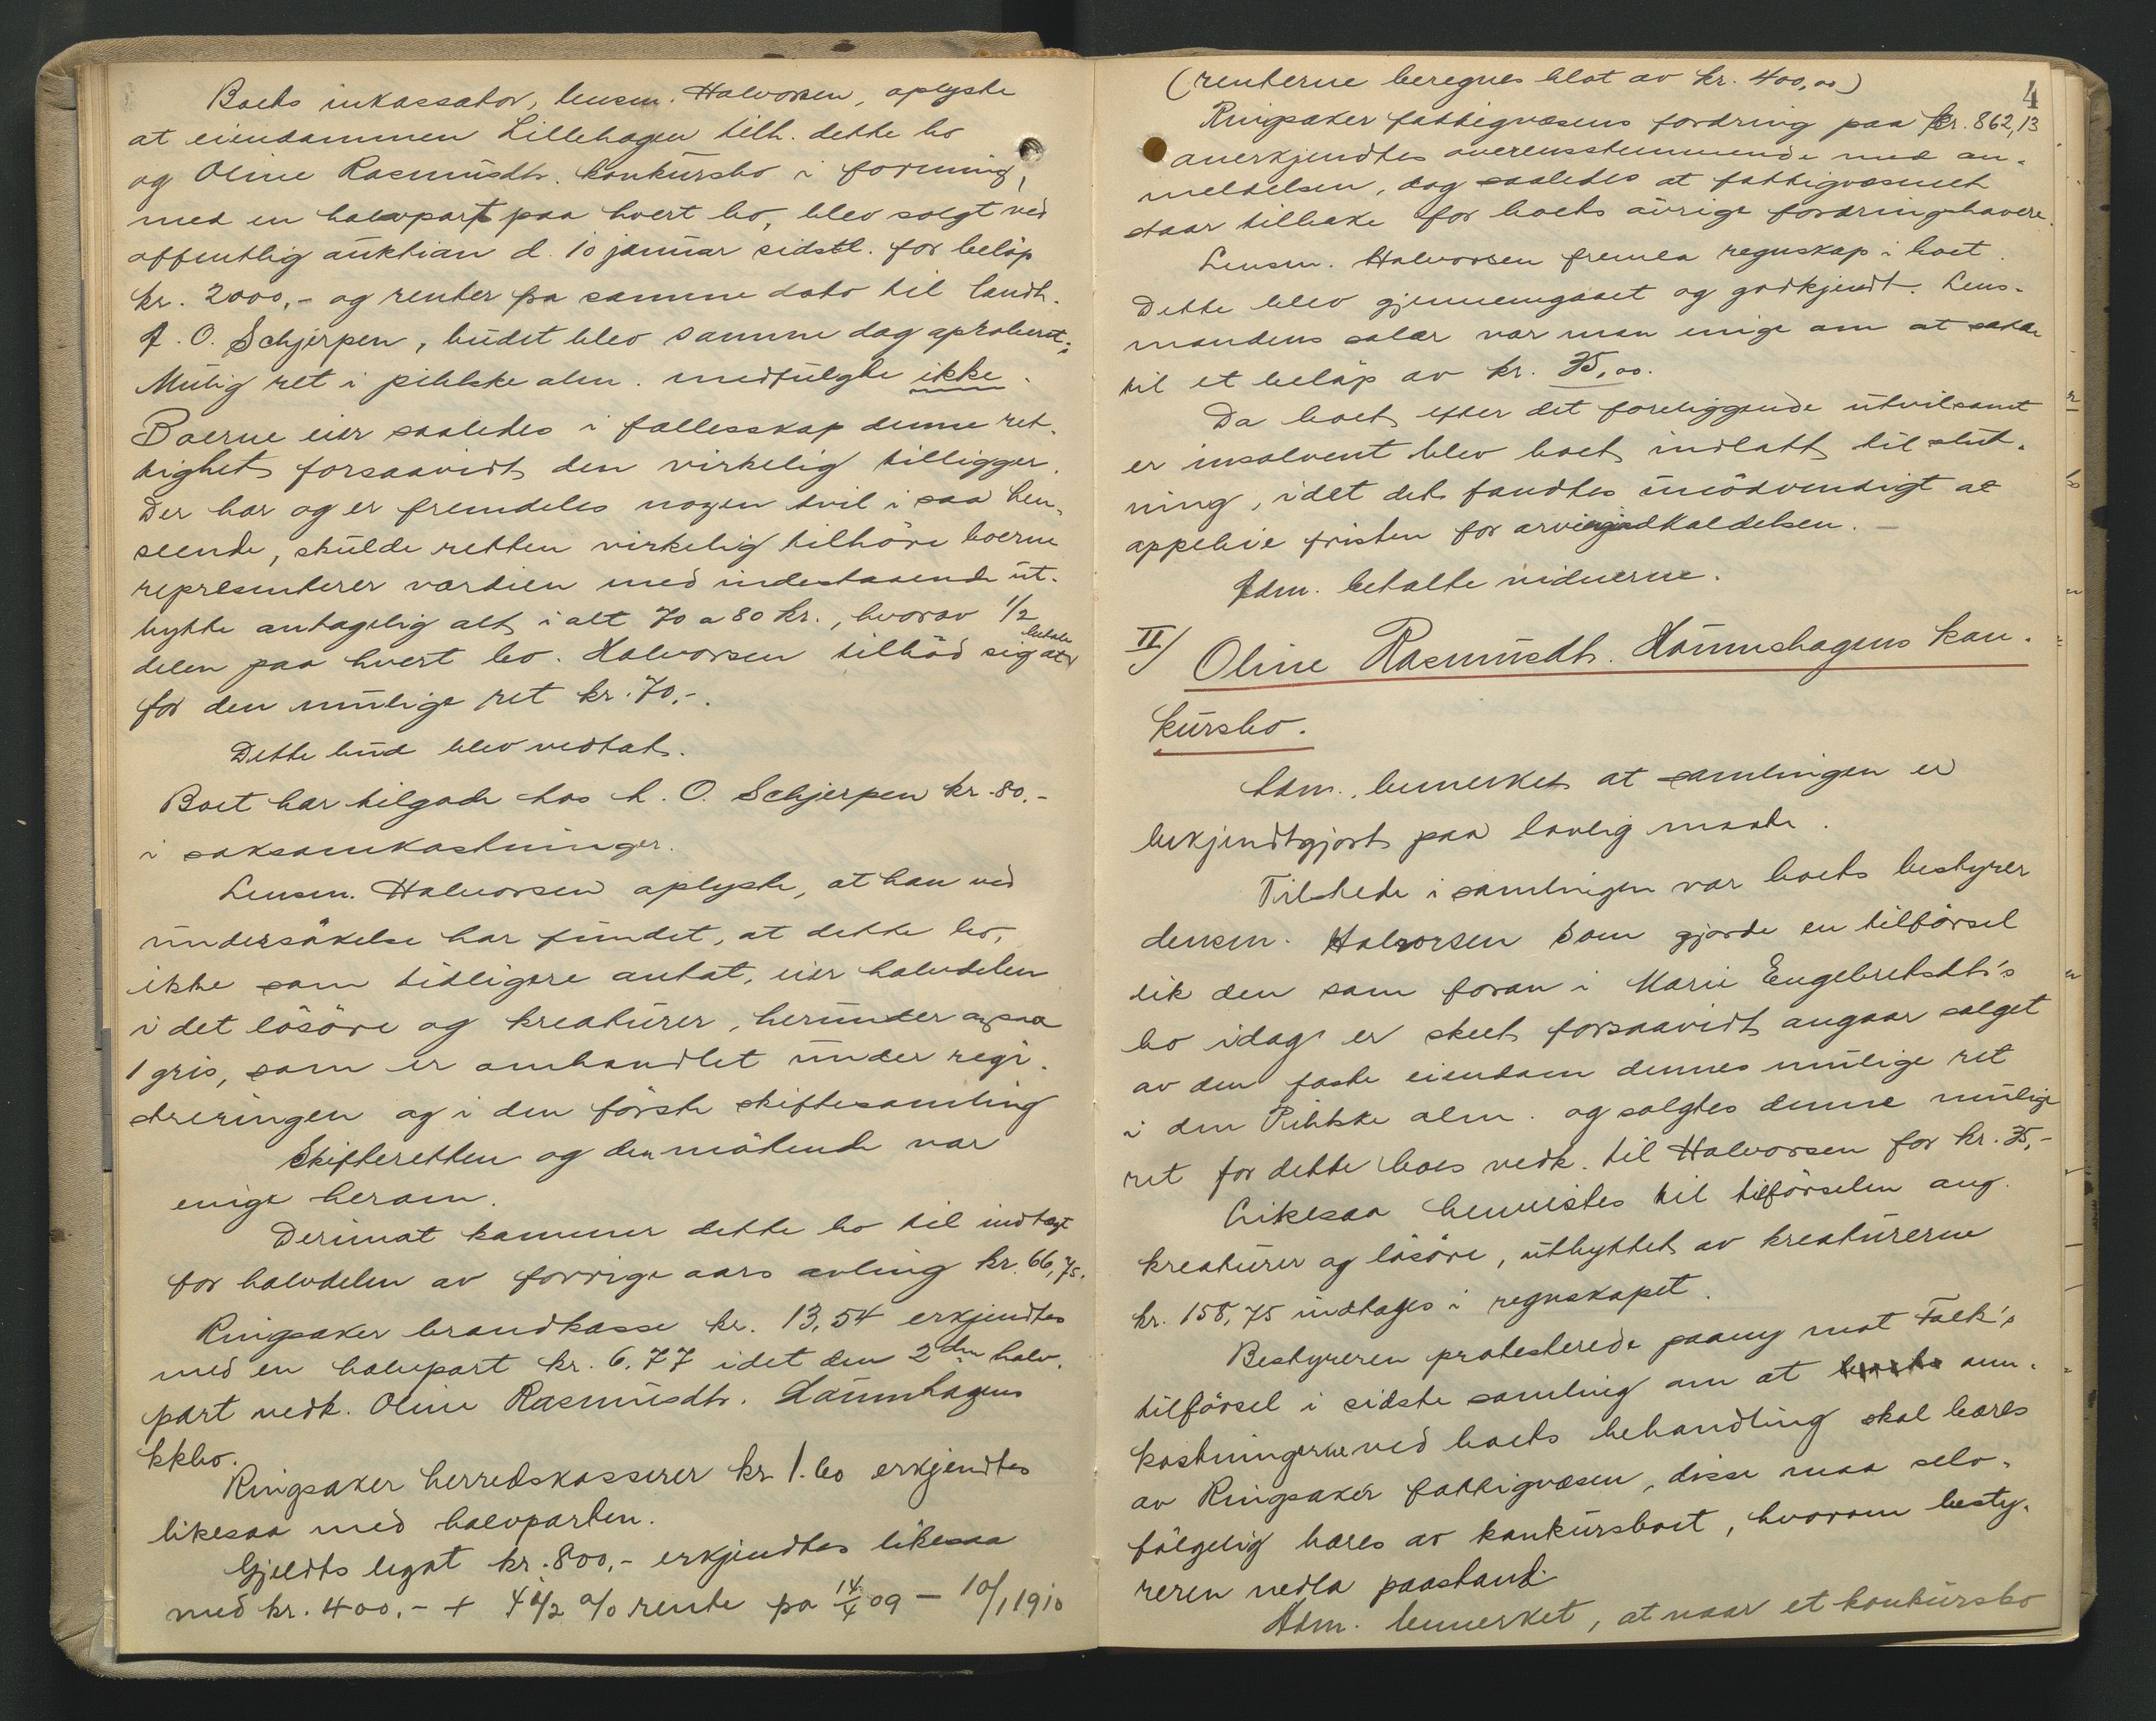 Boets inkassator, lensm. Halvorsen, oplyste
at eiendommen Lillehagen tilh. dette bo
og Oline Rasmusdtr. konkursbo i forening,
med en halvpart paa hvert bo, blev solgt ved
offentlig auktion d. 10 januar sidstl. for beløp
kr. 2000,- og renter fra samme dato til landh.
A. O. Schjerpen, budet blev samme dag aprobert;
Mulig ret i pihlske alm. medfulgte ikke.
Boerne eier saaledes i fællesskap denne ret-
tighet forsaavidt den virkelig tilligger.
Der har og er fremdeles nogen tvil i saa hen-
seende, skulde retten virkelig tilhöre boerne
representerer værdien med indestaaende ut-
bytte antagelig alt i alt 70 a 80 kr., hvorav 1/2
delen paa hvert bo. Halvorsen tilböd sig at betale
for den mulige ret kr. 70,-.
Dette bud blev vedtat.
Boet har tilgode hos A. O. Schjerpen kr. 80,-
i saksomkostninger.
Lensm. Halvorsen oplyste, at han ved
undersökelse har fundet, at dette bo,
ikke som tidligere antat, eier halvdelen
i det lösöre og kreaturer, herunder ogsaa
1 gris, som er omhandlet under regi-
streringen og i den förste skiftesamling
Skifteretten og den mötende var
enige herom.
Derimot kommer dette bo til indtægt
for halvdelen av forrige aars avling kr. 66,75.
Ringsaker brandkasse kr. 13,54 erkjendtes
med en halvpart kr. 6,77 idet den 2den halv-
part vedk. Oline Rasmusdtr. Lömushagens
kkbo.
Ringsaker herredskasserer kr 1.60 erkjendtes
likesaa med halvparten.
Gjeldts legat kr. 800,- erkjendtes likesaa
med kr. 400,- + 4 1/2 % rente fra 14/4 09 - 10/1 1910
4
(renterne beregnes blot av kr. 400,00)
Ringsaker fattigvæsens fordring paa kr. 862,13
anerkjendtes overensstemmende med an-
meldelsen, dog saaledes at fattigvæsenet
staar tilbake for boets övrige fordringshavere.
Lensm. Halvorsen fremla regnskap i boet.
Dette blev gjennemgaaet og godkjendt. Lens-
mandens salær var man enige om at sætte
til et beløp av kr. 35,00.
Da boet efter det foreliggende utvilsomt
er insolvent blev boet indlatt til slut-
ning, idet det fandtes unödvendigt at
appebie fristen for arvingindkaldelsen. -
Adm. betalte vidnerne.
II/ Oline Rasmusdtr. Lömushagens kon-
kursbo.
Adm. bemerket at samlingen er
bekjendtgjort paa lovlig maate.
Tilstede i samlingen var boets bestyrer
lensm. Halvorsen som gjorde en tilförsel
lik den som foran i Marie Engebretsdtr's
bo idag er skeet forsaavidt angaar salget
av den faste eiendom dennes mulige ret
i den Pihlske alm. og solgtes denne mulige
ret for dette boes vedk. til Halvorsen for kr. 35,-
Likesaa henvistes til tilförselen ang.
kreaturer og lösöre, utbyttet av kreaturerne
kr. 158,75 indtages i regnskapet.
Bestyreren protesterede paany mot Falk's
tilförsel i sidste samling om at om-
kostningerne ved boets behandling skal bæres
av Ringsaker fattigvæsen, disse maa selv-
fölgelig bæres av konkursboet, hvorom besty-
reren nedla paastand.
Adm. bemerket, at naar et konkursbo